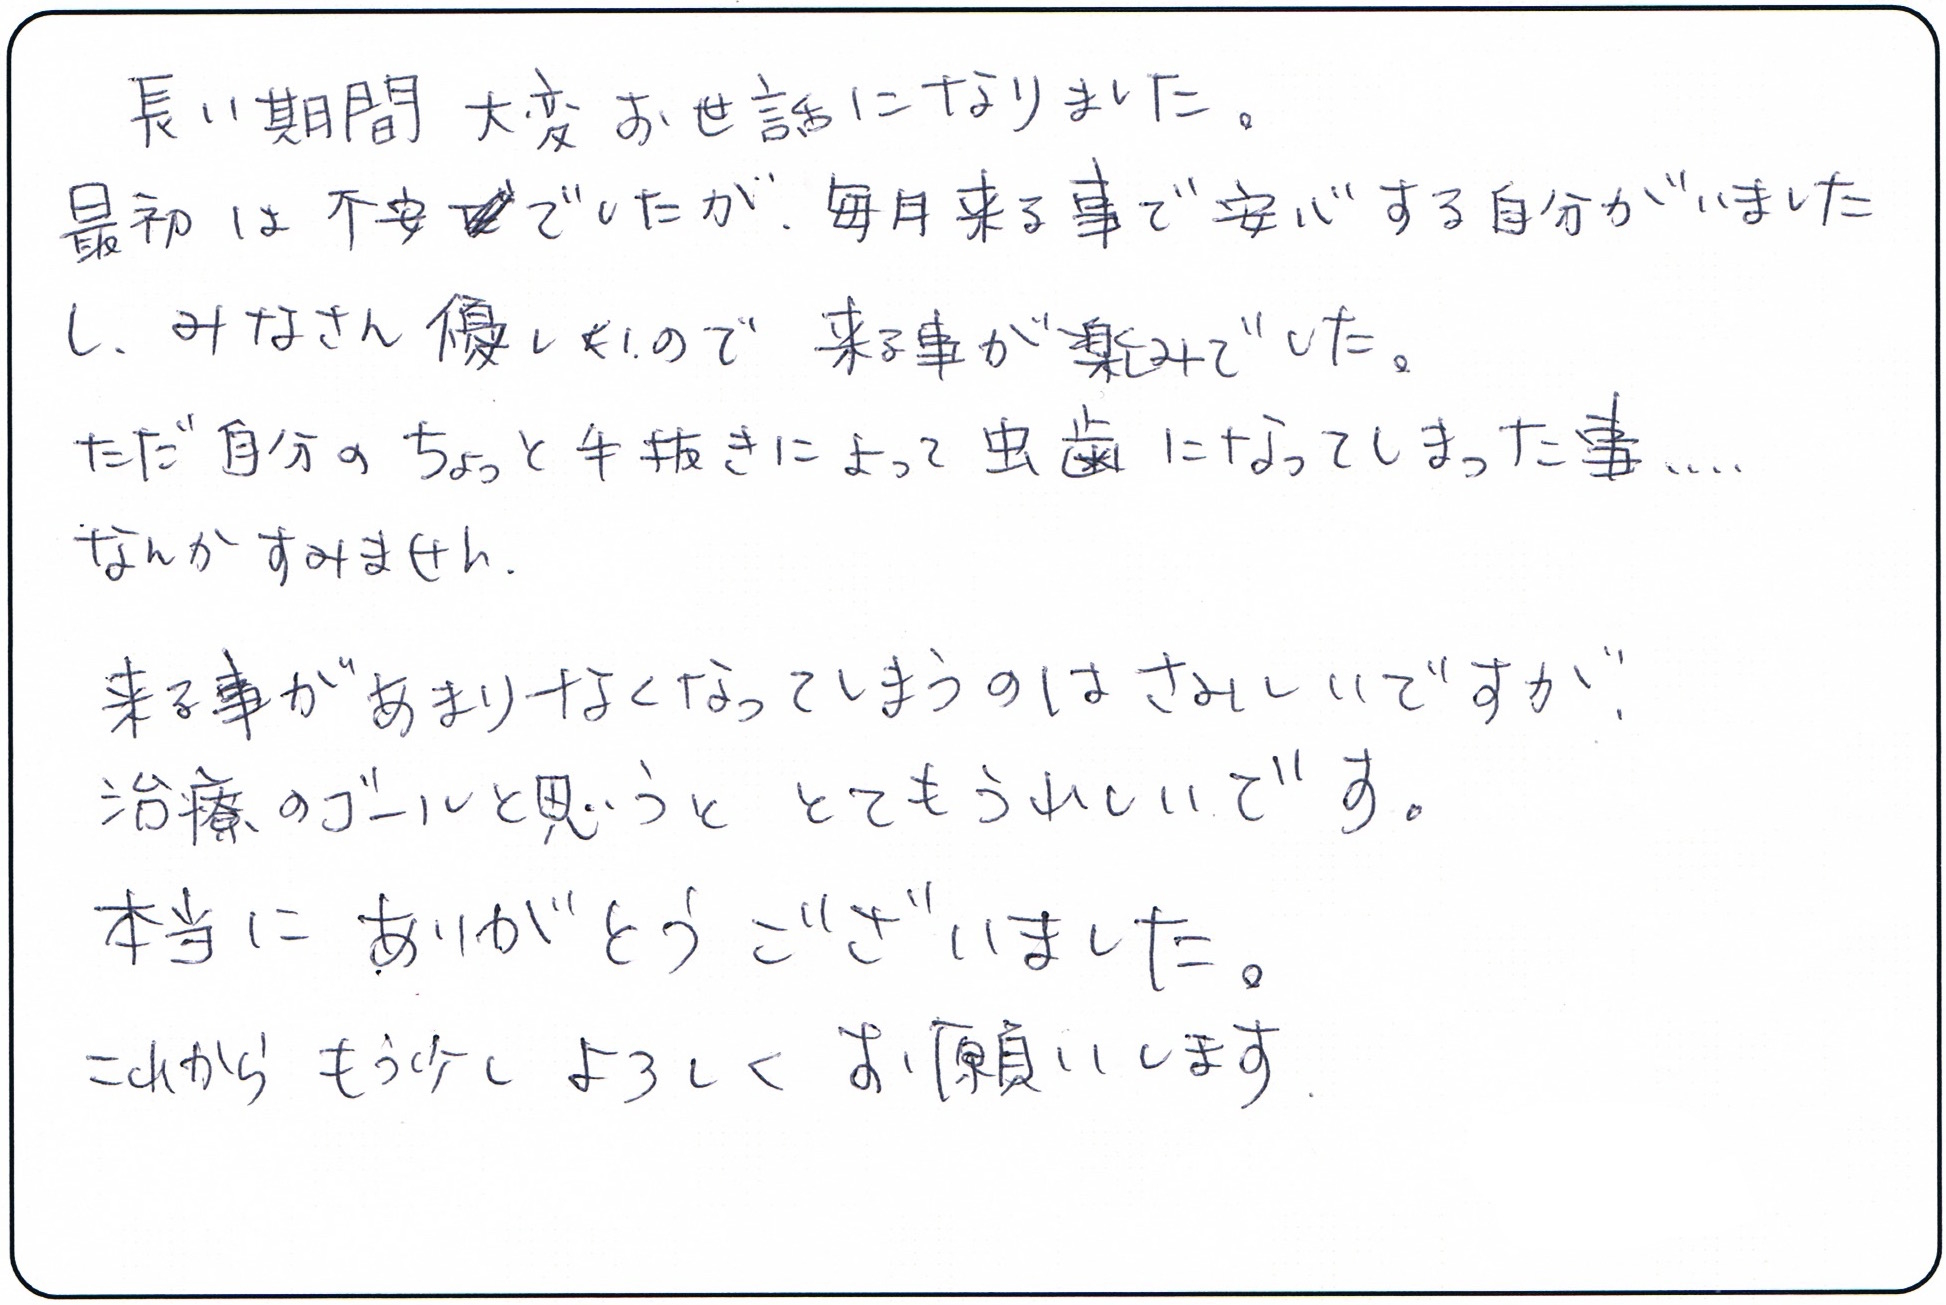 長い期間 大変お世話になりました。
最初は不安でしたが、毎月来る事で安心する自分がいました
し、みなさん優しいので 来る事が楽しみでした。
ただ自分のちょっと手抜きによって虫歯になってしまった事....
なんかすみません.
来る事があまりなくなってしまうのはさみしいですが、
治療のゴールと思うと とてもうれしいです。
本当に ありがとうございました。
これから もう少し よろしく お願いします.